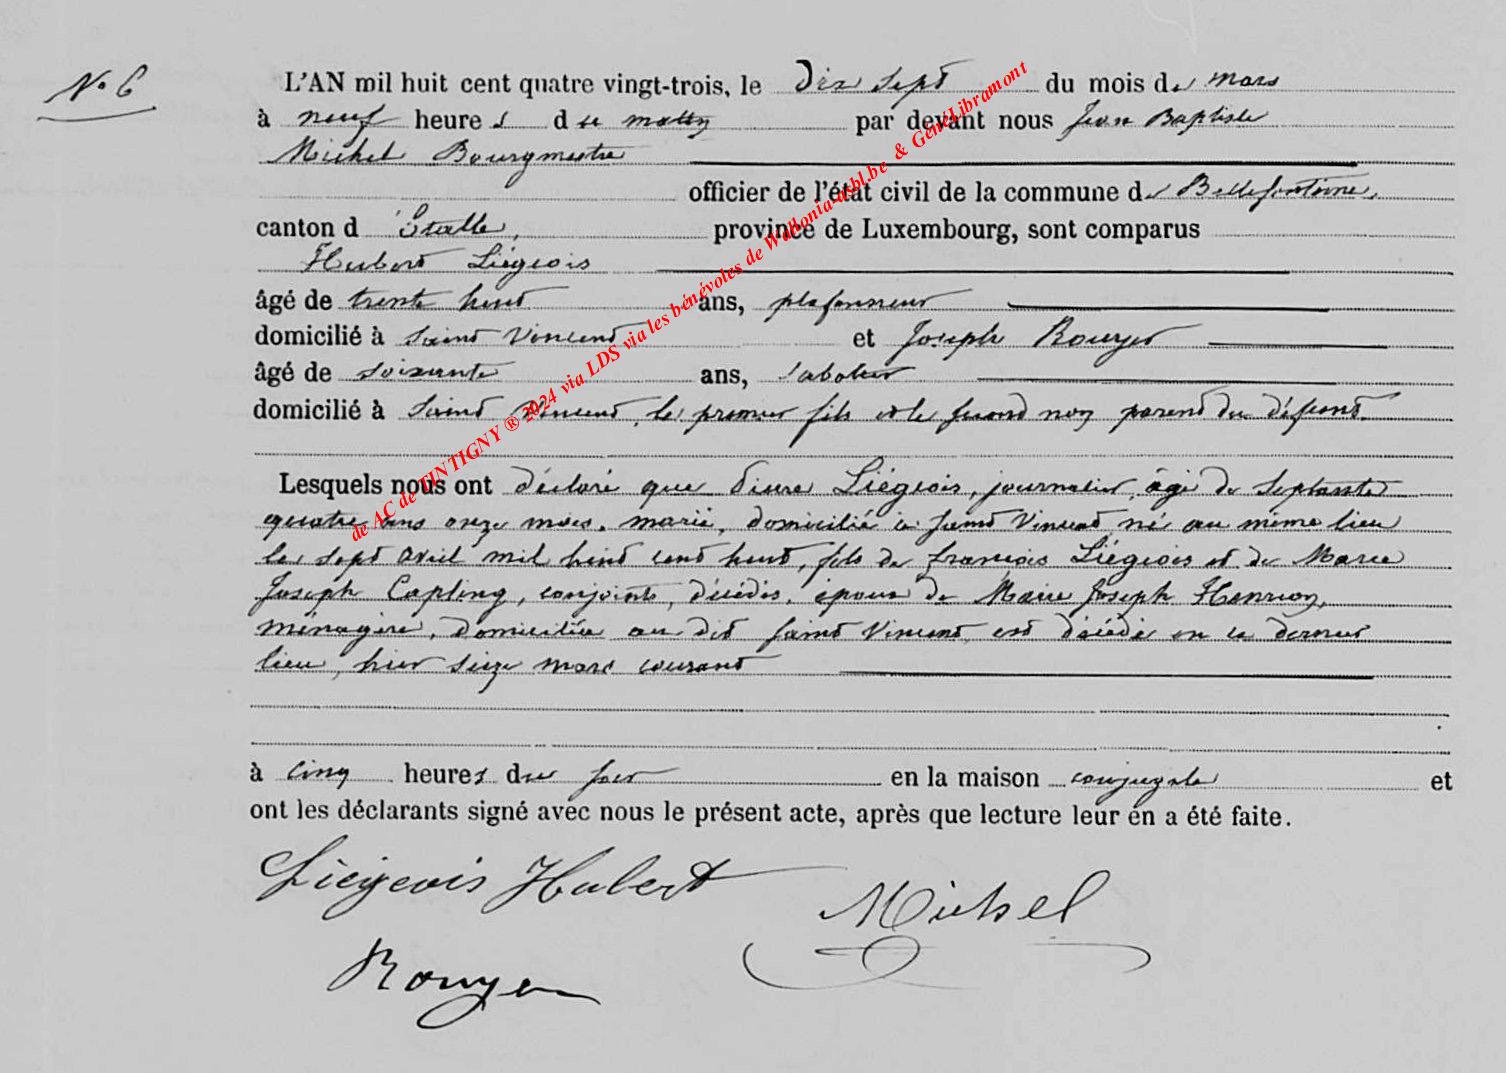 N° 6
L'AN mil huit cent quatre vingt-trois, le Dix sept du mois de mars
à neuf heures du matin par devant nous Jean Baptiste
Michel Bourgmestre
officier de l'état civil de la commune de Bellefontaine,
canton d'Etalle, province de Luxembourg, sont comparus
Hubert Liégeois
âgé de trente huit ans, plafonneur
domicilié à Saint Vincent et Joseph Rouyer
âgé de soixante ans, sabotier
domicilié à Saint Vincent, le premier fils et le second non parent du défunt.
Lesquels nous ont déclaré que Pierre Liégeois, journalier, âgé de septante
quatre ans onze mois, marié, domicilié à Saint Vincent né au même lieu
le sept avril mil huit cent huit, fils de François Liégeois et de Marie
Joseph Capling, conjoints, décédés, époux de Marie Joseph Henrion,
ménagère, domiciliée au dit Saint Vincent, est décédé en ce dernier
lieu, hier seize mars courant
à cinq heures du soir en la maison conjugale et
ont les déclarants signé avec nous le présent acte, après que lecture leur en a été faite.
Liégeois Hubert
Michel
Rouyer
de AC de TINTIGNY ® 2024 via LDS via les bénévoles de Wallonia-asbl.be & GénéLibramont